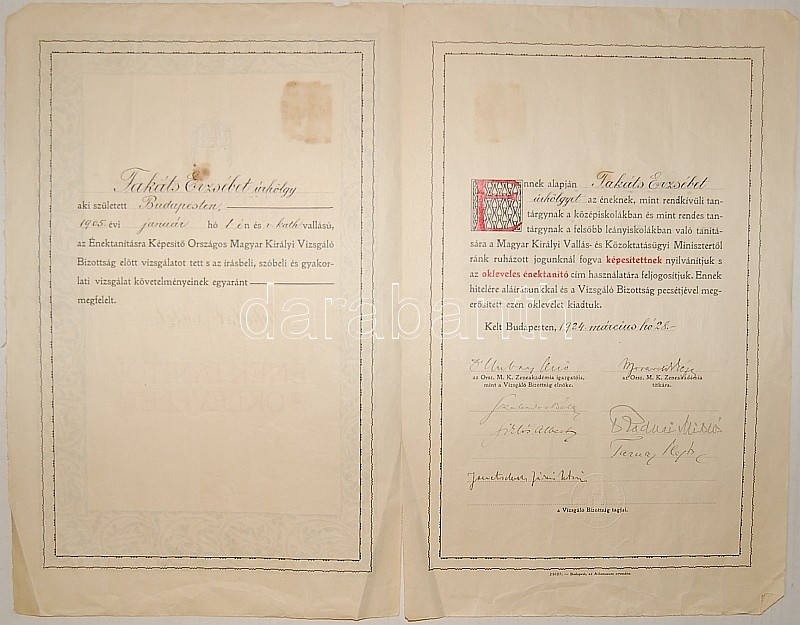 Takáts Erzsébet úrhölgy
aki született Budapesten,
1905 évi január hó 1 én és r. kath vallású,
az Énektanításra Képesítő Országos Magyar Királyi Vizsgáló
Bizottság előtt vizsgálatot tett s az írásbeli, szóbeli és gyakor-
lati vizsgálat követelményeinek egyaránt
megfelelt.
Ennek alapján Takáts Erzsébet
úrhölgyet az éneknek, mint rendkívüli tan-
tárgynak a középiskolákban és mint rendes tan-
tárgynak a felsőbb leányiskolákban való tanítá-
sára a Magyar Királyi Vallás- és Közoktatásügyi Minisztertől
ránk ruházott jogunknál fogva képesítettnek nyilvánítjuk s
az okleveles énektanító cím használatára feljogosítjuk. Ennek
hitelére aláírásunkkal és a Vizsgáló Bizottság pecsétjével meg-
erősített ezen oklevelet kiadtuk.
Kelt Budapesten, 1924. március hó 28.-
Dr Hubay Jenő
az Orsz. M. K. Zeneakadémia igazgatója,
mint a Vizsgáló Bizottság elnöke.
az Orsz. M. K. Zeneakadémia
titkára.
Szabados Béla
Siklós Albert
Dr Radnai Miklós
a Vizsgáló Bizottság tagjai.
darabanth